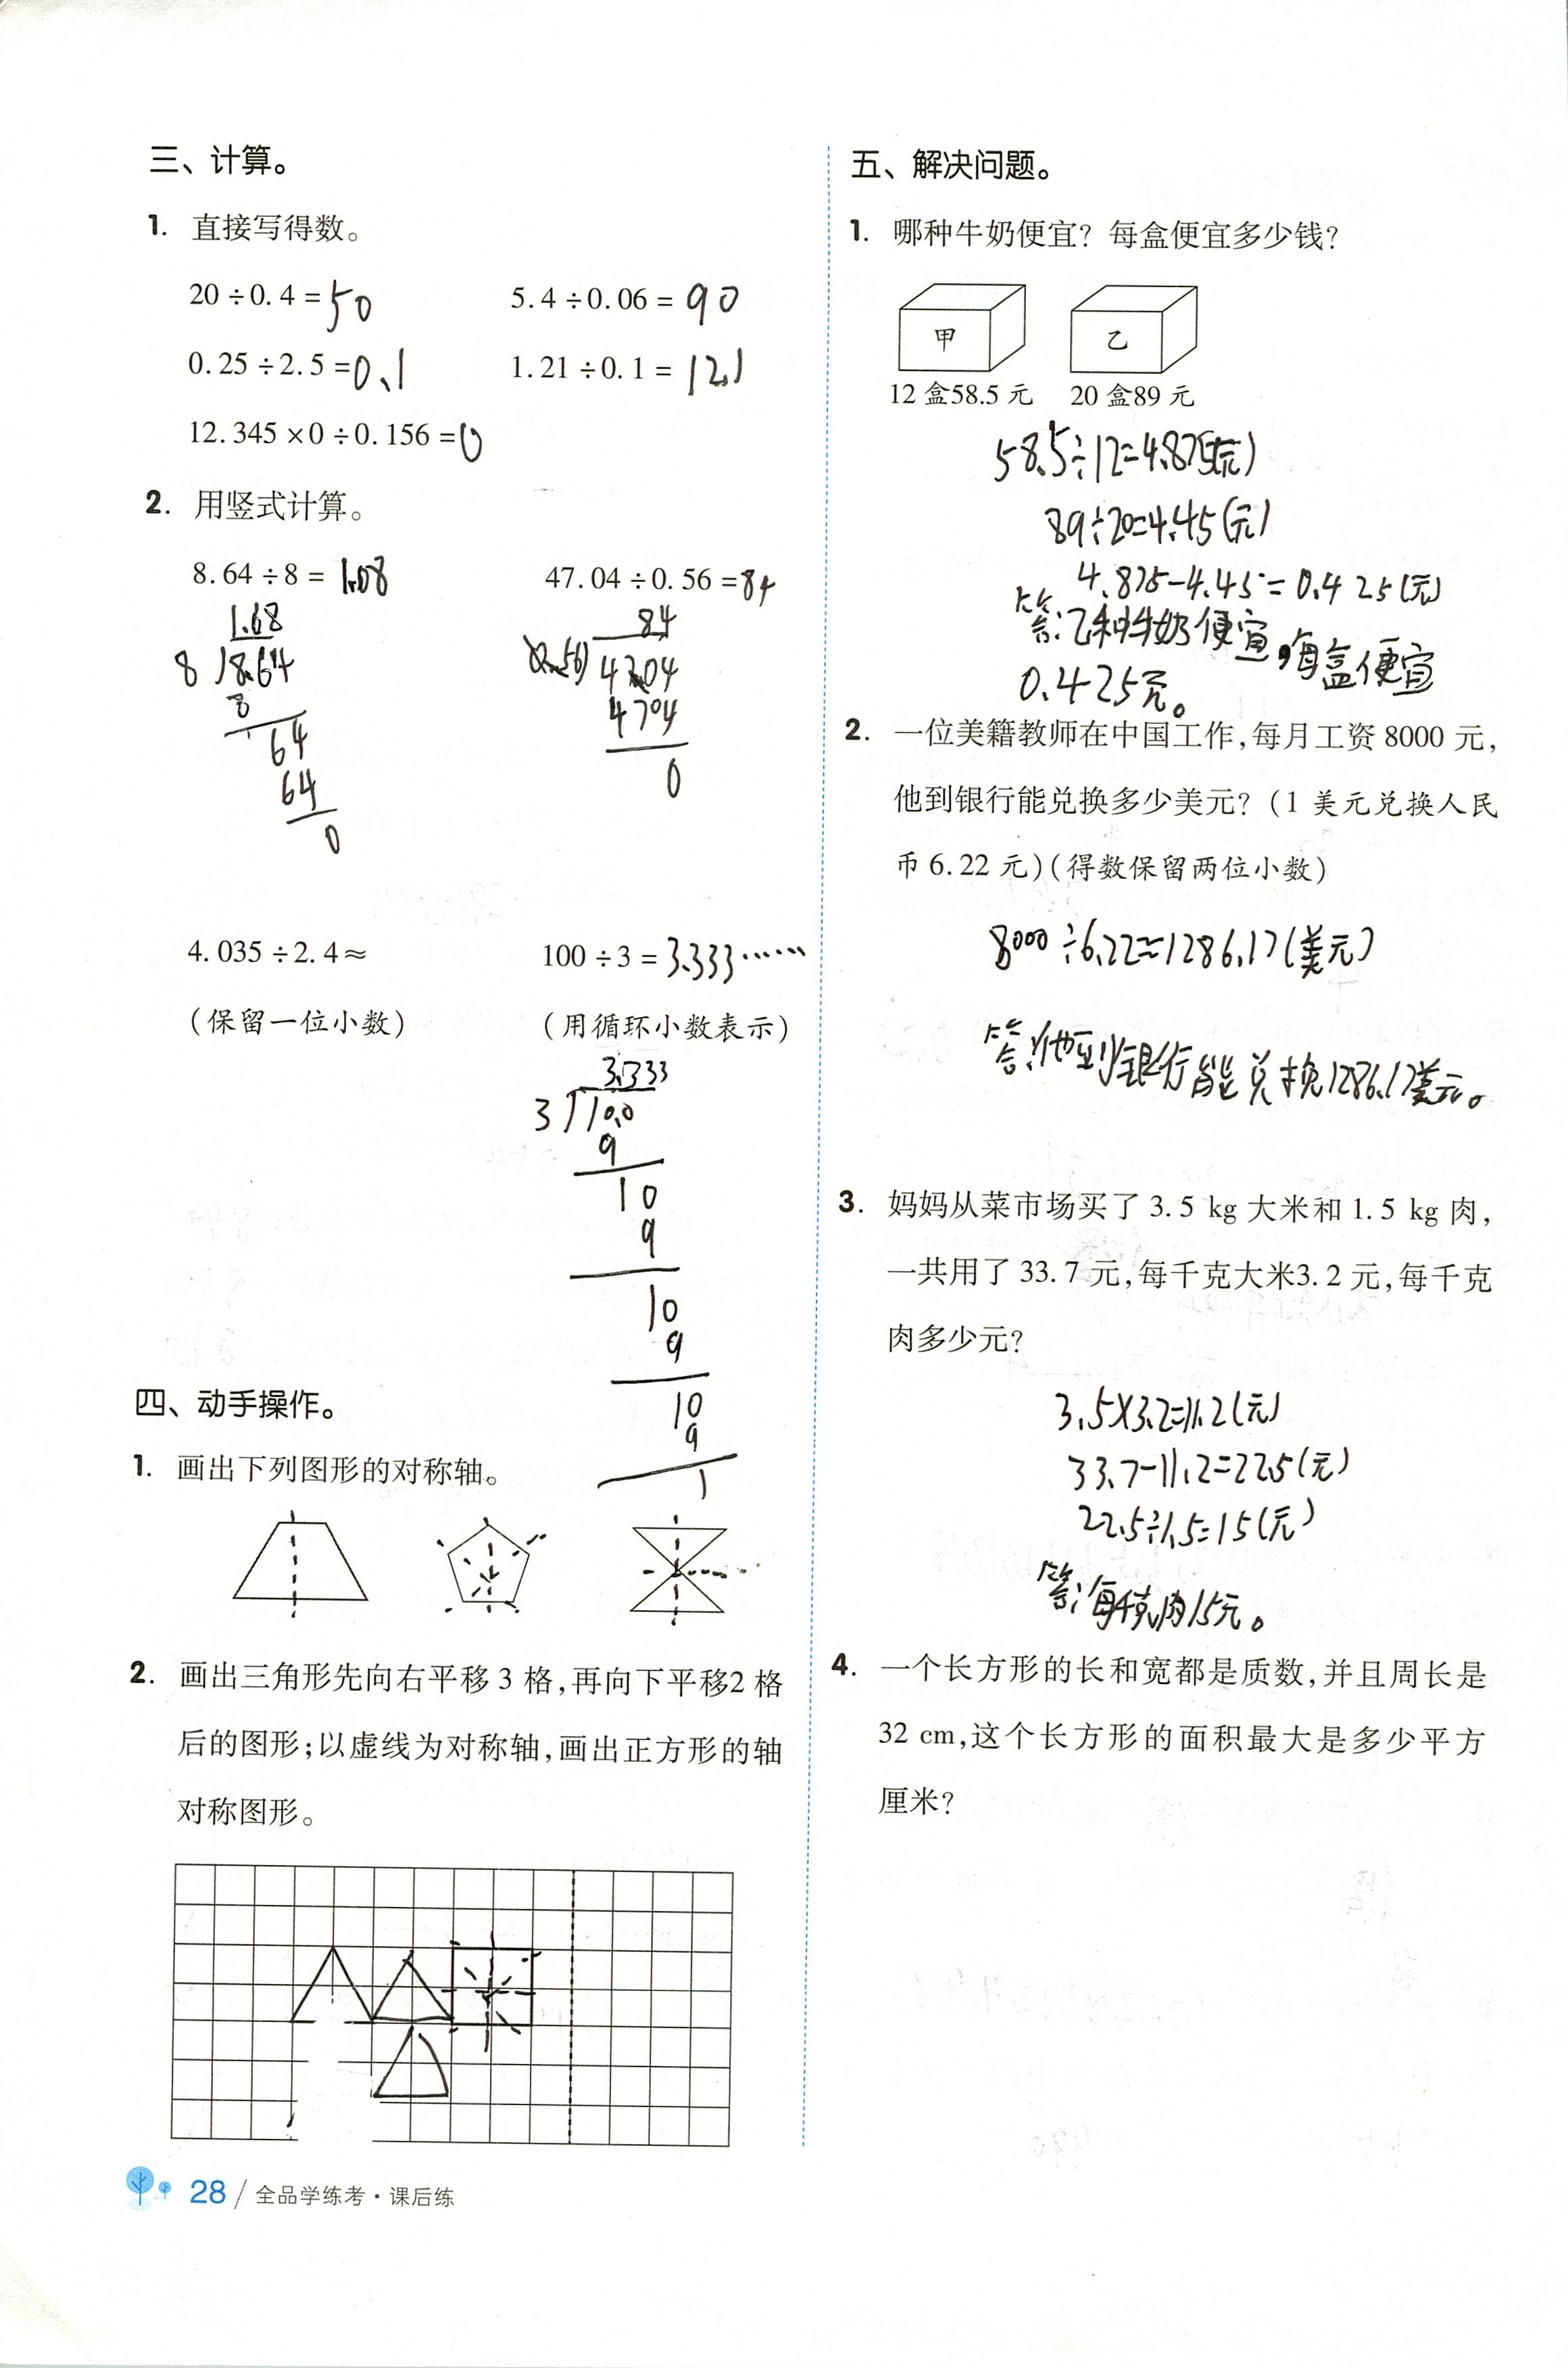 三、计算。
1. 直接写得数。
20÷0.4=50
5.4÷0.06=90
0.25÷2.5=0.1
1.21÷0.1=12.1
12.345×0÷0.156=0
2. 用竖式计算。
8.64÷8=1.08
47.04÷0.56=84
1.68
8 8.64
8
64
64
0
84
0.56 4704
4704
0
4.035÷2.4≈
100÷3=3.333……
(保留一位小数)
(用循环小数表示)
3.333
3 10.0
9
10
9
10
9
10
9
1
四、动手操作。
1. 画出下列图形的对称轴。
2. 画出三角形先向右平移3格,再向下平移2格
后的图形;以虚线为对称轴,画出正方形的轴
对称图形。
28/全品学练考·课后练
五、解决问题。
1. 哪种牛奶便宜?每盒便宜多少钱?
甲 乙
12盒58.5元 20盒89元
58.5÷12=4.875(元)
89÷20=4.45(元)
4.875-4.45=0.425(元)
答:乙种牛奶便宜,每盒便宜
0.425元。
2. 一位美籍教师在中国工作,每月工资8000元,
他到银行能兑换多少美元?(1美元兑换人民
币6.22元)(得数保留两位小数)
8000÷6.22≈1286.17(美元)
答:他到银行能兑换1286.17美元。
3. 妈妈从菜市场买了3.5 kg大米和1.5 kg肉,
一共用了33.7元,每千克大米3.2元,每千克
肉多少元?
3.5×3.2=11.2(元)
33.7-11.2=22.5(元)
22.5÷1.5=15(元)
答:每千克肉15元。
4. 一个长方形的长和宽都是质数,并且周长是
32 cm,这个长方形的面积最大是多少平方
厘米?